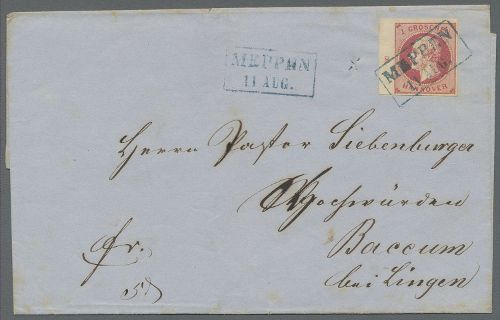 MEPPEN
11 AUG.
1 GROSCHEN
MEPPEN
AUG.
HANNOVER
Herrn Pastor Siebenburger
Hochwürden
Baccum
bei Lingen
fr.